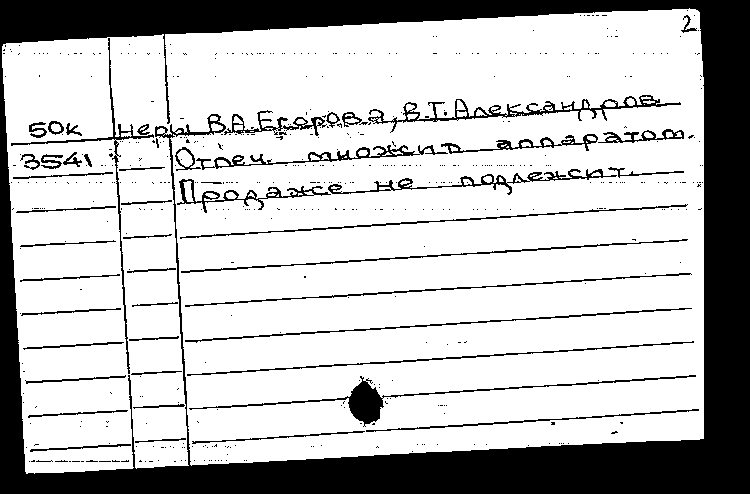 2
50к неры В.А.Егорова, В.Т.Александров.
3541 Отпеч. множит. аппаратом.
Продаже не подлежит.